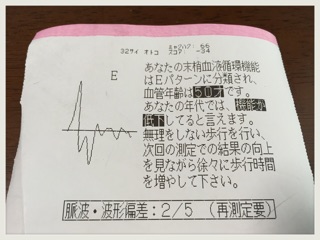 32サイ オトコ ミャクハク: 66
スコア: -34
E
あなたの末梢血液循環機能
はEパターンに分類され、
血管年齢は50才です。
あなたの年代では、機能が
低下してると言えます。
無理をしない歩行を行い、
次回の測定での結果の向上
を見ながら徐々に歩行時間
を増やして下さい。
脈波・波形偏差:2/5 (再測定要)